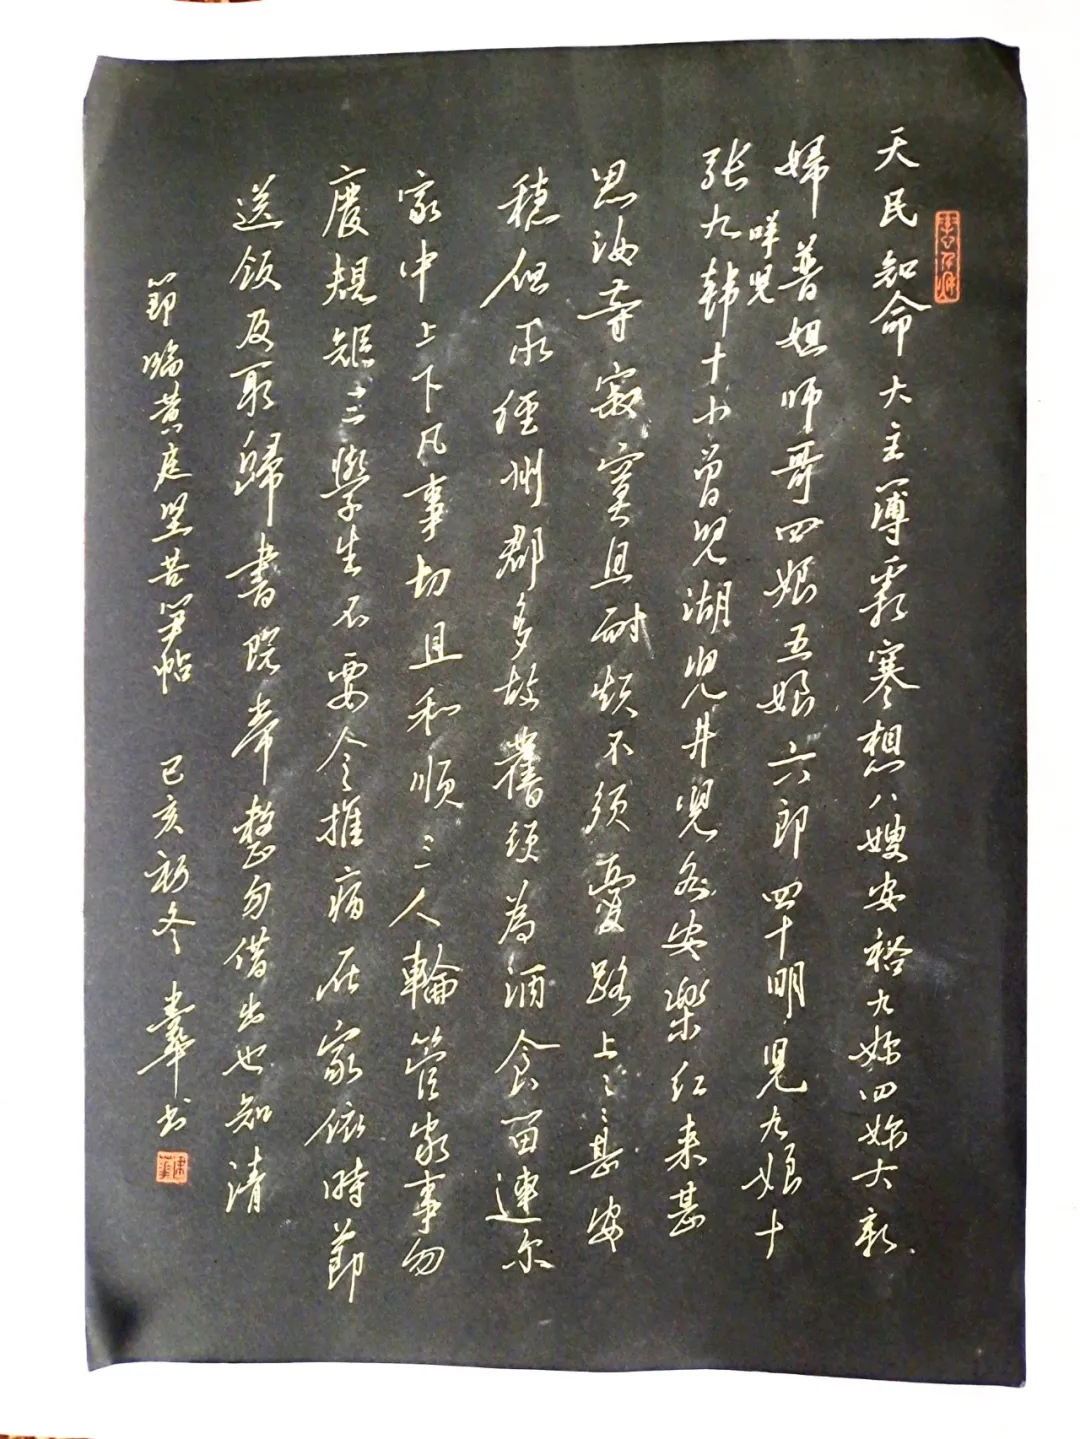 天民知命大主簿霜寒想八嫂安裕九婶四婶大新
婦普姐師哥四娘五娘六郎四十明兒九娘十
張九咩兒韩十小曾兒湖兒井兒各安樂红来甚
思汝等寂寞且耐烦不须憂路上上甚安
穏但所经州郡多故舊须為酒食留連尔
家中上下凡事切且和順三人輪管家事勿
廢規矩三學生不要令推病在家依時節
送飯及取歸書院常整勿借出也知清
節臨黄庭坚苦笋帖 己亥初冬 書